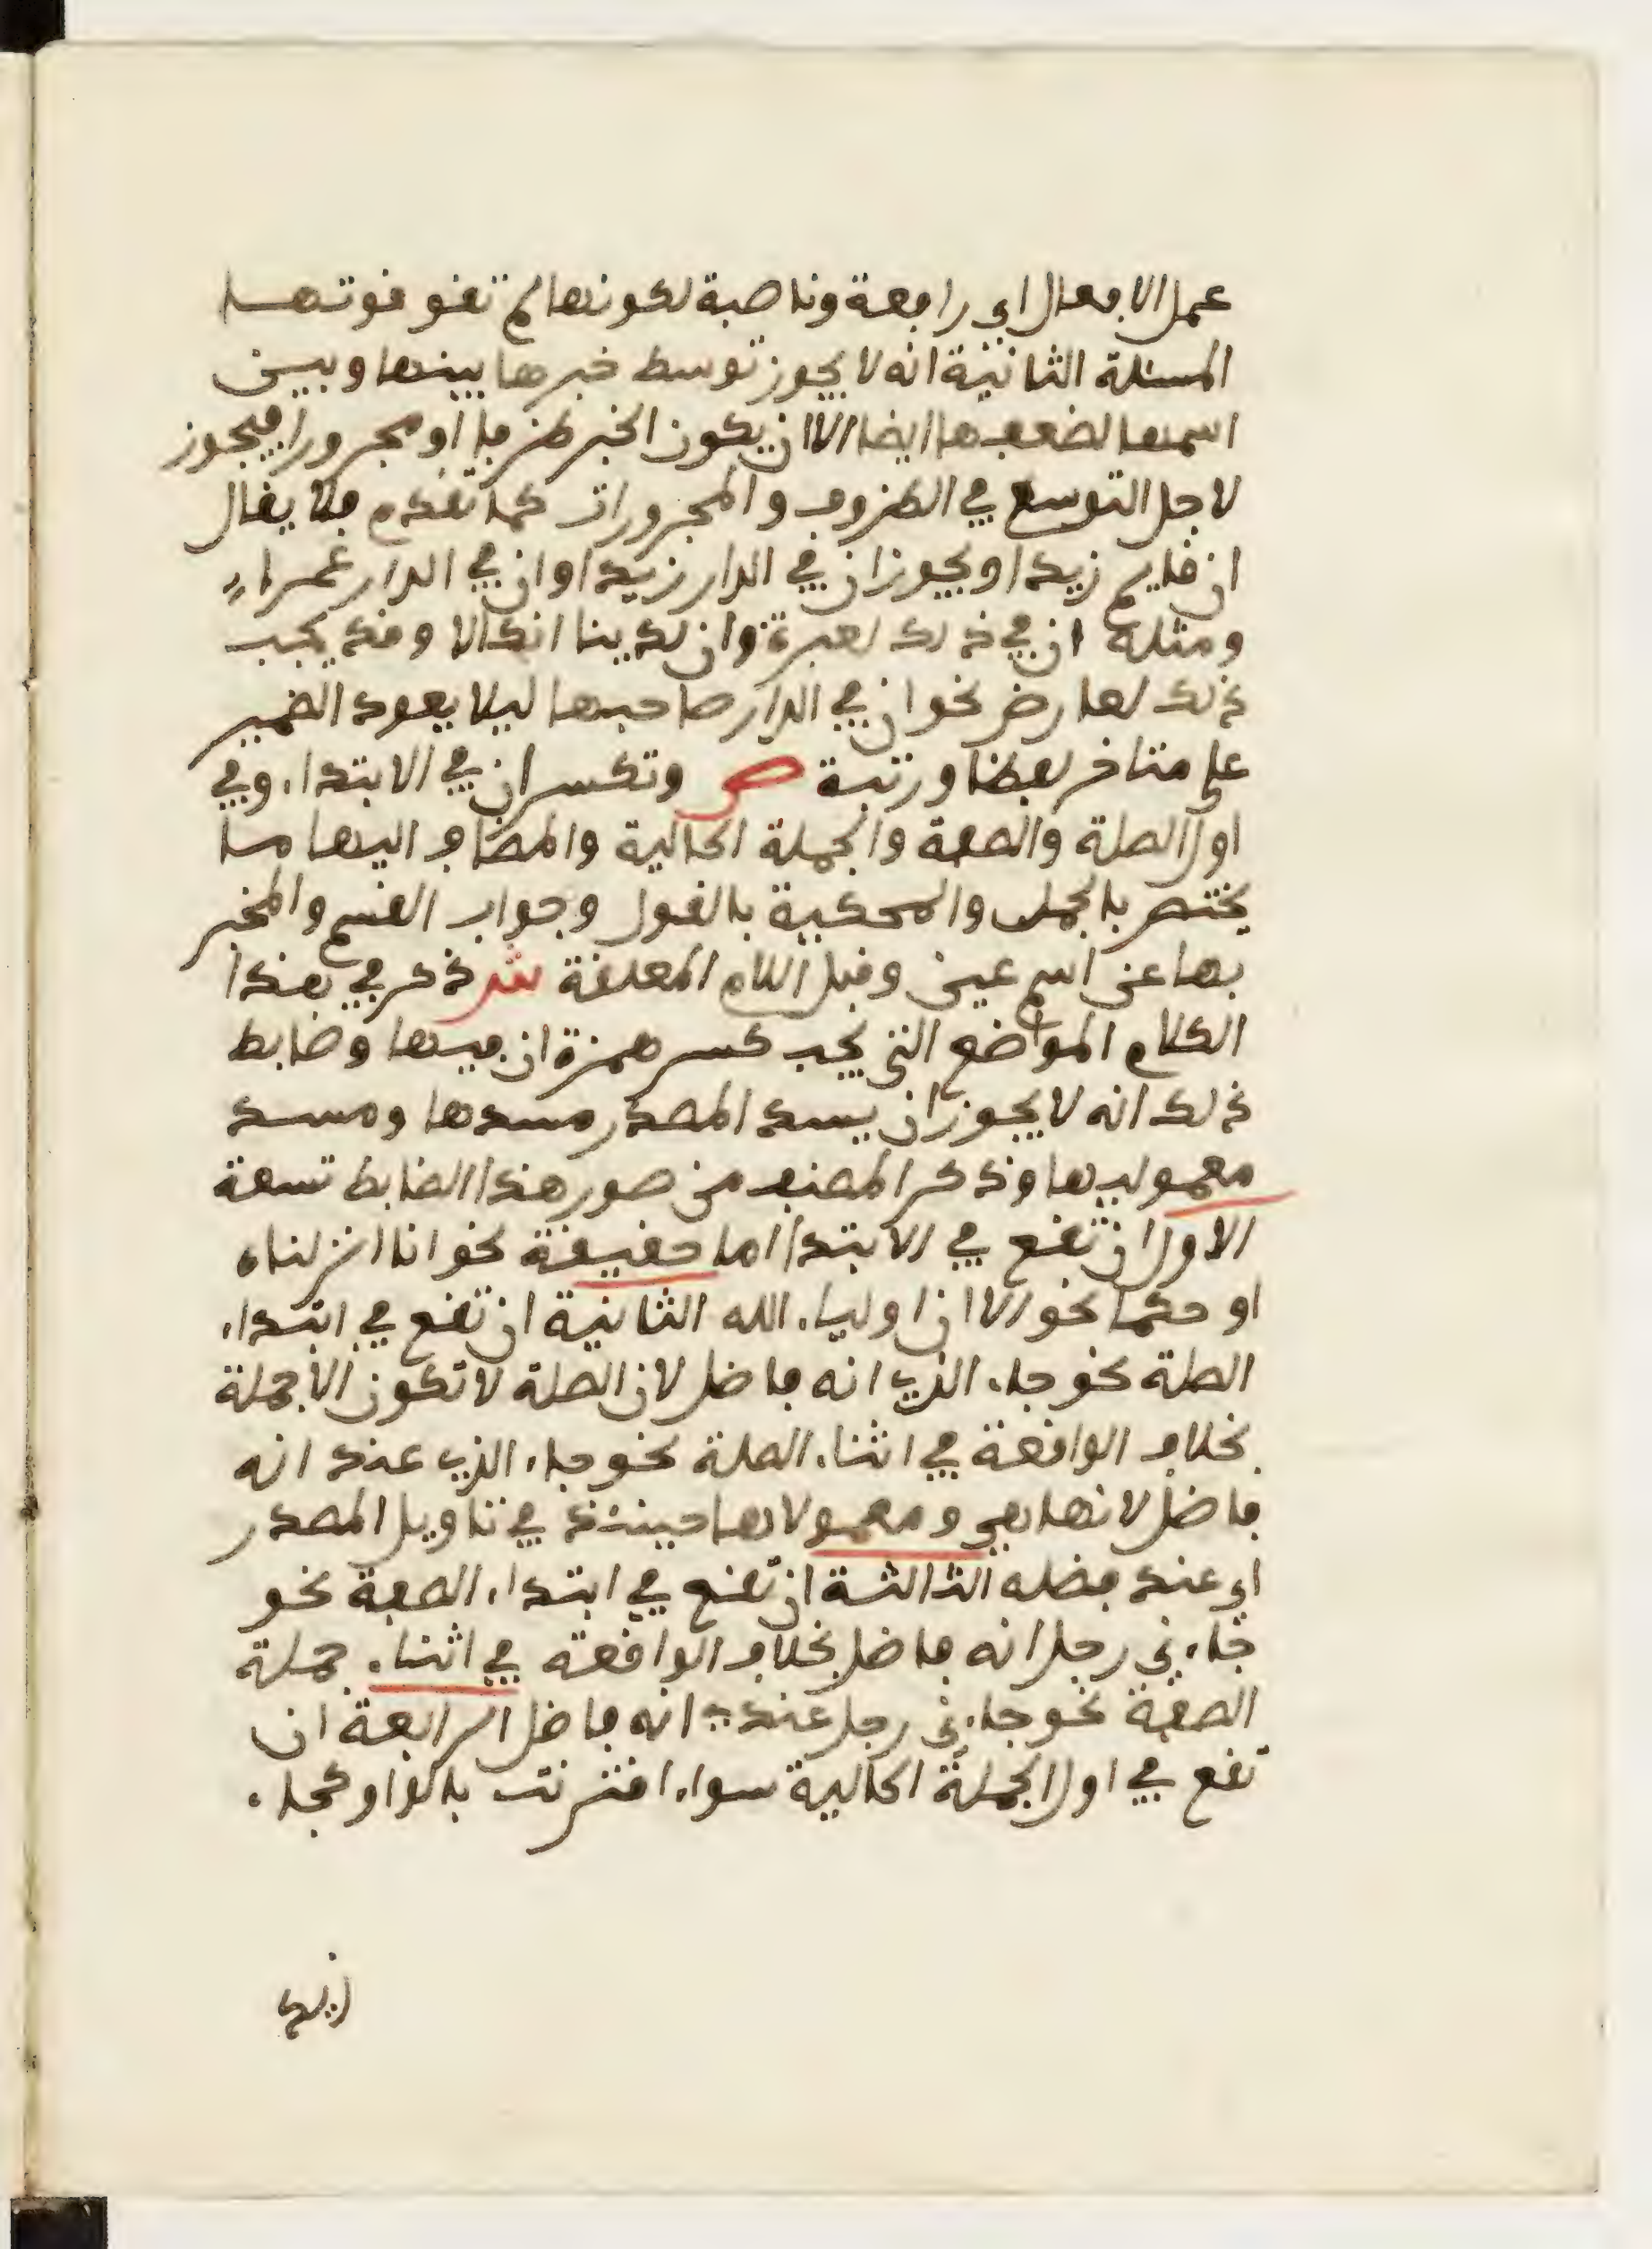 عمل الافعال اي رافعة وناصبة لكونها لم تقو قوتها
المسئلة الثانية انه لا يجوز توسط خبرها بينها وبين
اسمها لضعفها ايضا الا ان يكون الخبر ظرفا او مجرورا فيجوز
لاجل التوسع في الظروف والمجرورات كما تقدم فلا يقال
ان قايم زيدا ويجوز ان في الدار زيدا وان في الدار عمراء
ومثله ان في ذلك لعبرة وان لدينا انكالا وقد يجب
ذلك لعارض نحو ان في الدار صاحبها ليلا يعود الضمير
على متاخر لفظا ورتبة ص وتكسر ان في الابتداء وفي
اول الصلة والصفة والجملة الحالية والمضاف اليها ما
يختص بالجمل والمحكية بالقول وجواب القسم والمخبر
بها عن اسم عين وقبل اللام المعلقة ش ذكر في هذا
الكلام المواضع التي يجب كسر همزة ان فيها وضابط
ذلك انه لا يجوز ان يسد المصدر مسدها ومسد
معموليها وذكر المصنف من صور هذا الضابط تسعة
الاول ان تقع في الابتدا اما حقيقة نحو انا انزلناه
او حكما نحو الا ان اولياء الله الثانية ان تقع في ابتداء
الصلة نحو جاء الذي انه فاضل لان الصلة لا تكون الا جملة
بخلاف الواقعة في اثناء الصلة نحو جاء الذي عندي انه
فاضل لانها هي ومعمولاها حينئذ في تاويل المصدر
اي عندي فضله الثالثة ان تقع في ابتداء الصفة نحو
جاءني رجل انه فاضل بخلاف الواقعة في اثناء جملة
الصفة نحو جاءني رجل عندي انه فاضل الرابعة ان
تقع في اول الجملة الحالية سواء اقترنت بالواو كجاء
زيد